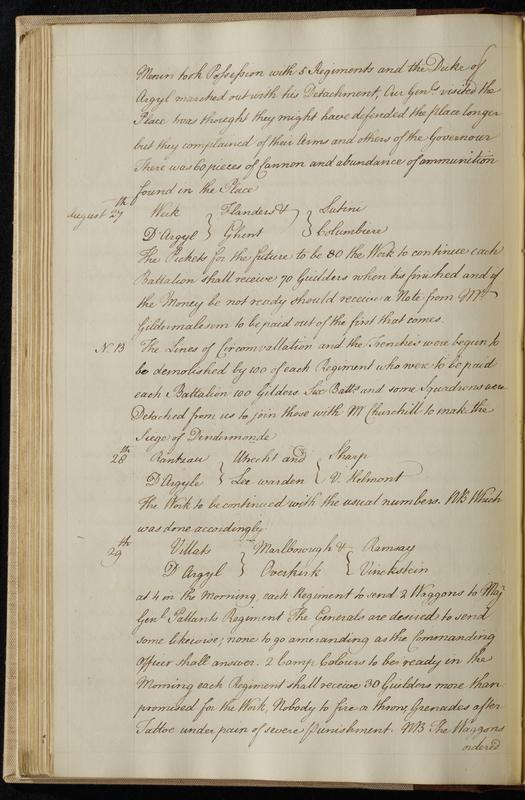 Menin took Possession with 5 Regiments and the Duke of
Argyl marched out with his Detachment, Our Genls visited the
Place twas thought they might have defended the place longer
but they complained of their Arms and others of the Governour
There was 60 pieces of Cannon and abundance of ammunition
found in the Place
August 27th Week } Flanders & } Lutini
D'Argyl } Ghent } Columbiere
The Pickets for the future to be 80 the Work to continue each
Battalion shall receive 70 Guilders when his finished and if
the Money be not ready should receive a Note from Mr
Gildermalesem to be paid out of the first that comes.
N. B The Lines of Circomvallation and the Trenches were begun to
be demolished by 100 of each Regiment who were to be paid
each Battalion 100 Gilders. Six Batts and some Squadrons were
Detached from us to join those with Mr Churchill to make the
Siege of Dindermonde
28th Rantzau } Utrecht and { Sharp
D'Argyle } Lee warden { V. Helmont
The Work to be continued with the usual numbers. NB Which
was done accordingly
29th Villats } Marlborough & { Ramsay
D'Argyl } Overkirk { Vinckstein
at 4 in the Morning, each Regiment to send 2 Waggons to Maj
Genl Pallants Regiment The Generals are desired to send
some likewise; none to go amerauding as the Commanding
Officer shall answer. 2 Camp Colours to be ready in the
Morning each Regiment shall receive 30 Guilders more than
promised for the Work. Nobody to fire or throw Grenades after
Tattoe under pain of severe Punishment. NB The Waggons
ordered